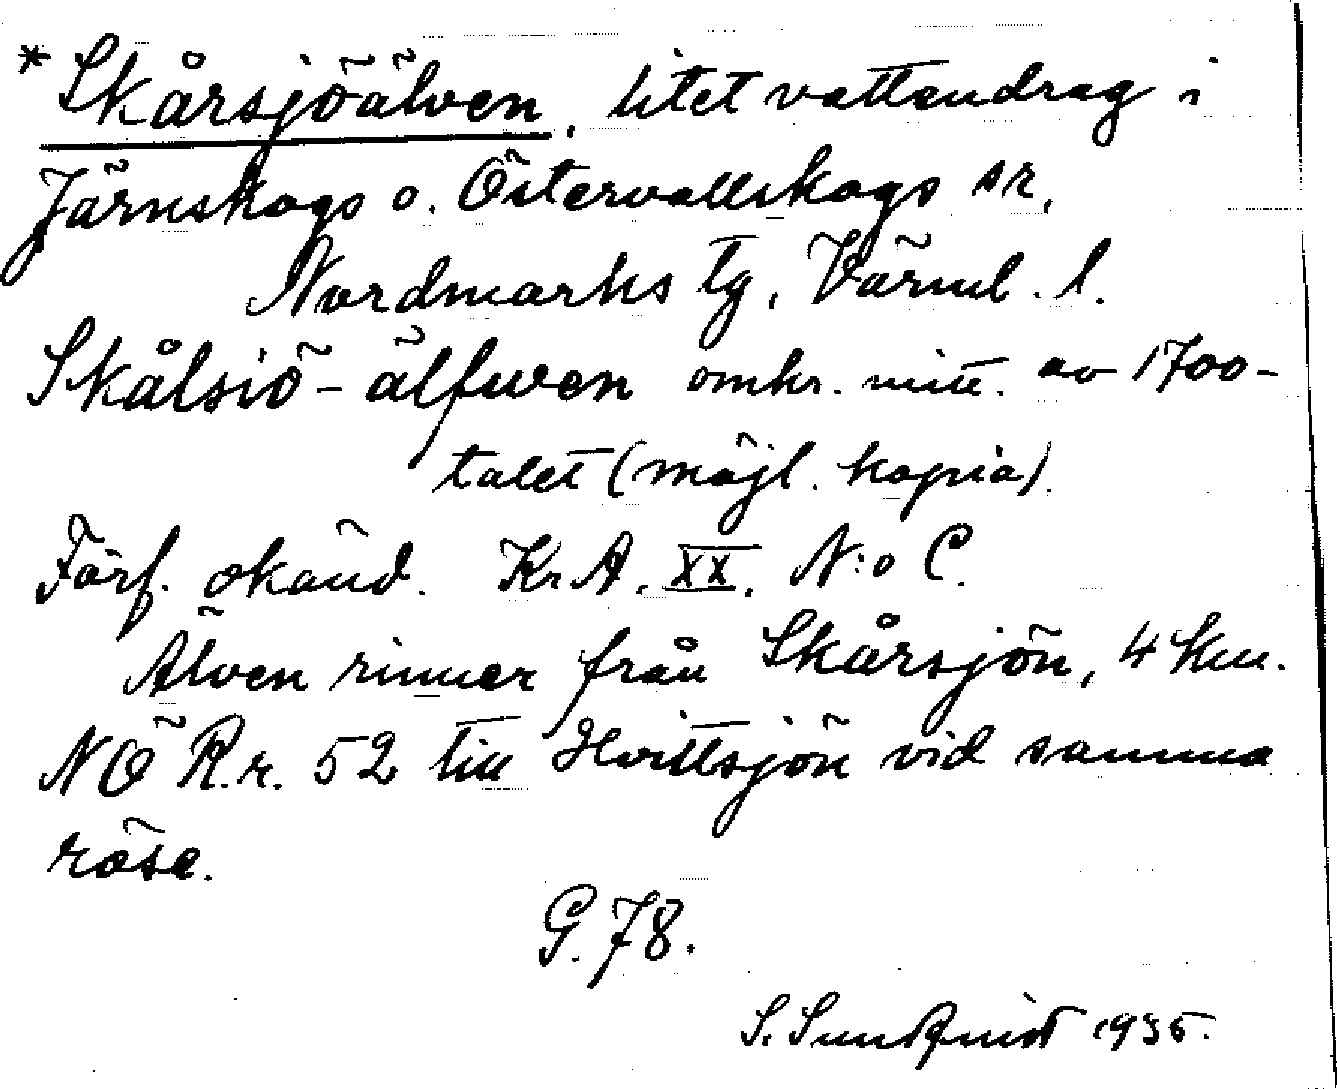 * Skårsjöälven, litet vattendrag i
Järnskogs o. Östervallskogs sr,
Nordmarks tg, Värml. l.
Skålsiö-älfwen omkr. mitt. av 1700-
talet (möjl. kopia).
Förf. okänd. Kr A. XX. N:o C.
Älven rinner från Skårsjön, 4 km.
NÖ R.r. 52 till Hvittsjön vid samma
röse.
G. 78.
S. Sundqvist 1935.